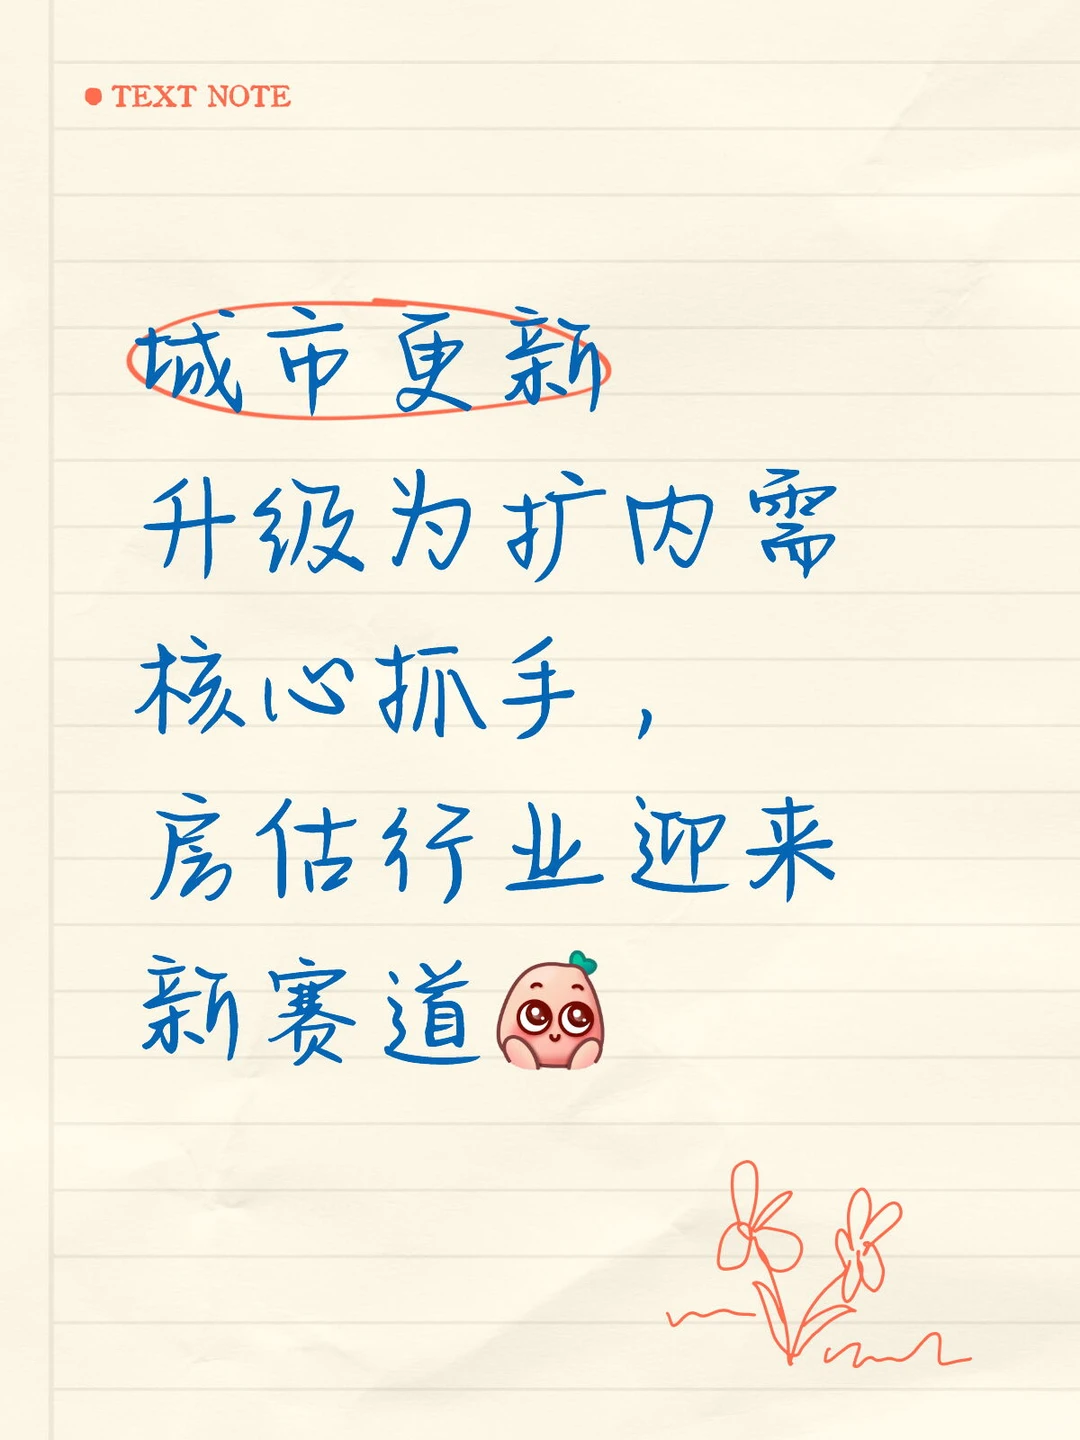 TEXT NOTE
城市更新
升级为扩内需
核心抓手，
房估行业迎来
新赛道